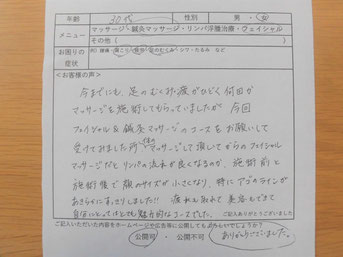 年齢 30代 性別 男・女
メニュー マッサージ・鍼灸マッサージ・リンパ浮腫治療・フェイシャル
その他(
お困りの症状 例)腰痛・肩こり・頭痛・足のむくみ・シワ・たるみ など
<お客様の声>
今までにも、足のむくみ・疲れがひどく何回か
マッサージを施術してもらっていましたが、今回
フェイシャル&鍼灸マッサージのコースをお願いして
受けてみました所 体のマッサージして頂いてからのフェイシャル
マッサージだとリンパの流れが良くなるのか、施術前と
施術後で顔のサイズが小さくなり、特にアゴのラインが
あきらかにすっきりしました!! 疲れも取れて美容もできて
自分にとってはとても魅力的なコースでした。 ご記入ありがとうございました
ご記入いただいた内容をホームページや広告等に公開してもよろしいでしょうか?
公開可 ・ 公開不可 ありがとうございました。